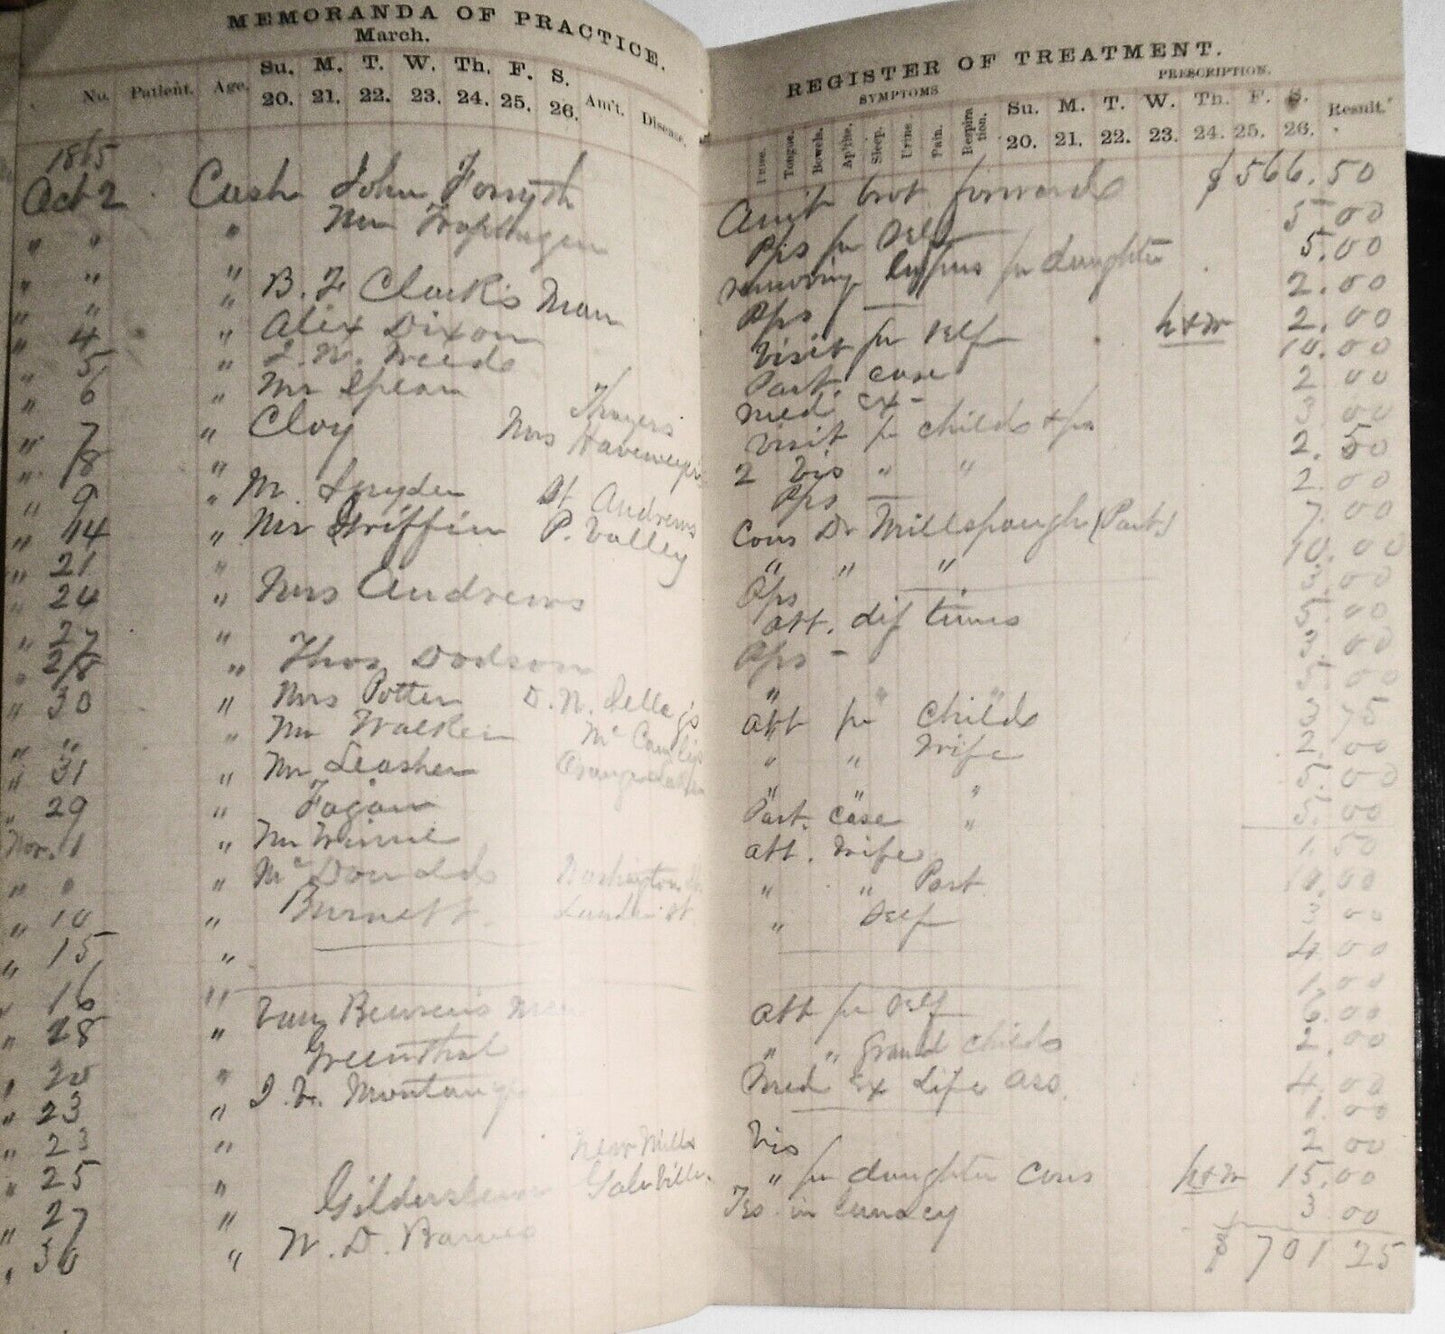 MEMORANDA OF PRACTICE.
March.
No. Patient. Age. Su. M. T. W. Th. F. S. Am't. Disease.
20. 21. 22. 23. 24. 25. 26.
1865
Oct 2 Cash John Forsyth
" " " Mr
" " "
" " " B. F Clark's Man
" 4 " Alex Dixon
" 5 " Weeds
" 6 " Mr Spear
" 7 " Cloy Mrs Havemeyers
Thayers
" 8 "
" 9 " M. Snyder St Andrews
" 14 " Mr Griffin P. Valley
" 21 "
" 24 " Mrs Andrews
" 27 "
" 28 " Thos Dodson
" 30 " Mrs Potter D. W.
" " " Mr Walker
" 31 " Mr Leasher
" 29 " Fagan
Nov. 1 " Mr Winne
" " " McDonalds Washington
" 10 " Burnett
" 15 "
" 16 "
" 28 " Van Beuren's
" 20 " Greenthal
" 23 "
" 23 "
" 25 " New Mills
Gildersleeve
" 27 "
" 30 " W. D. Barnes
REGISTER OF TREATMENT.
SYMPTOMS PRESCRIPTION.
Pulse. Tongue. Bowels. Ap'tite. Sleep. Urine. Pain. Respiration. Su. M. T. W. Th. F. S. Result.
20. 21. 22. 23. 24. 25. 26.
Amt brot forwards $566.50
Ps for Self 5.00
removing for daughter 5.00
Ps 2.00
Visit for Self h+m 2.00
Part. case 10.00
Med ex - 2.00
Visit for childs + ps 3.00
2 Vis " " 2.50
Ps 2.00
Cons Dr Millspaugh (Part.) 7.00
" " " 10.00
Ps 3.00
att. dif times 5.00
Ps - 3.00
" " " 5.00
att for childs 3 75
" " Wife 2.00
" " 5.00
Part. case " 5.00
att. Wife 1 50
" " Part 10.00
" Self 3.00
4.00
1.00
att for Self 6.00
" " Grand childs 2.00
Med Ex Life Ass. 4.00
1.00
Vis 2 00
" for daughter cons h+m 15.00
in lunacy 3 00
$ 701 25